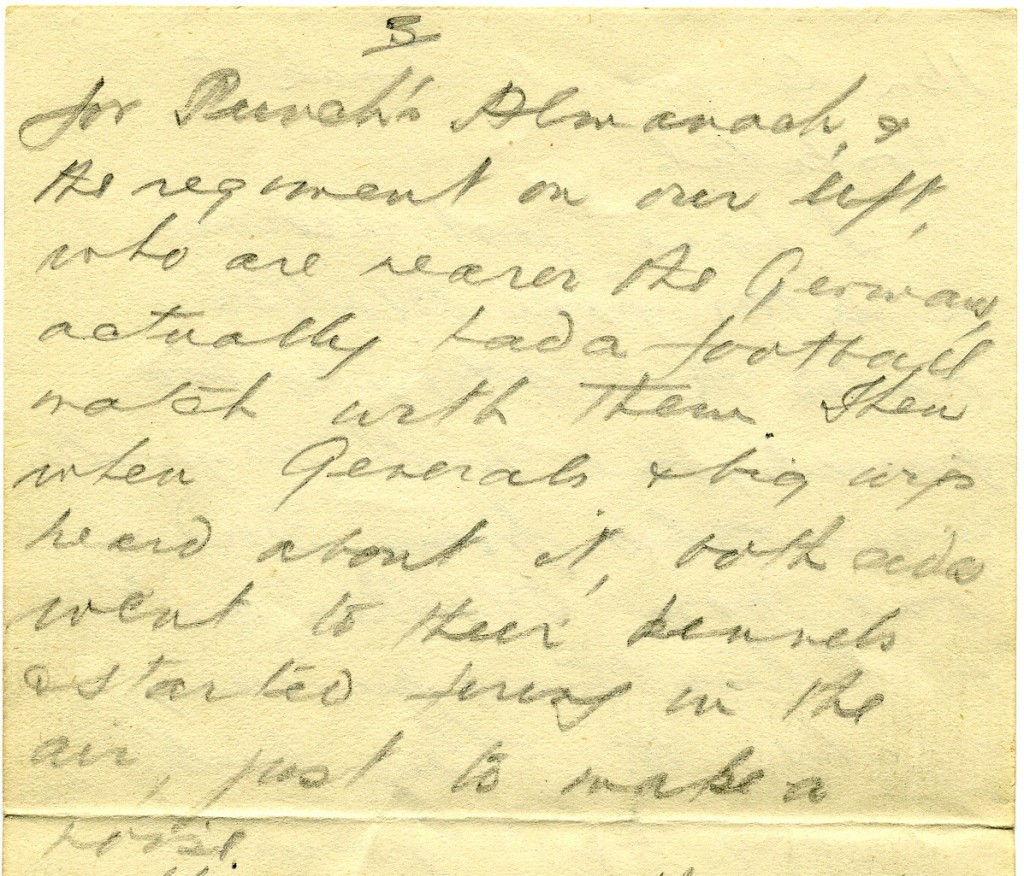 5
for Punch's Almanach, &
the regiment on our left,
who are nearer the Germans,
actually had a football
match with them. Then
when Generals & big wigs
heard about it, both sides
went to their kennels
& started firing in the
air, just to make a
noise.